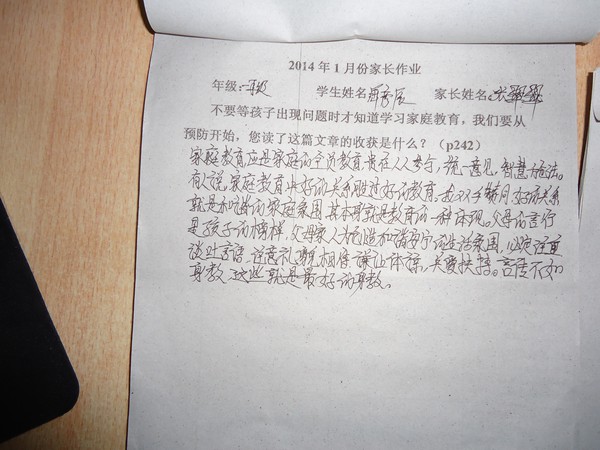 2014年1月份家长作业
年级:一级 学生姓名 家长姓名:
不要等孩子出现问题时才知道学习家庭教育，我们要从
预防开始，您读了这篇文章的收获是什么？（p242）
家庭教育应是家庭的全员教育,贵在人人参与,统一意见,智慧施法。
有人说,家庭教育中好的关系胜过好的教育,好的关系
就是和谐的家庭氛围,其本身就是教育的一种体现。父母的言行
是孩子的榜样,父母家人为创造和谐安宁的生活氛围,必须注重
谈吐言语,注意礼貌,相信谦让体谅,关爱扶持。言传不如
身教,这些就是最好的身教。